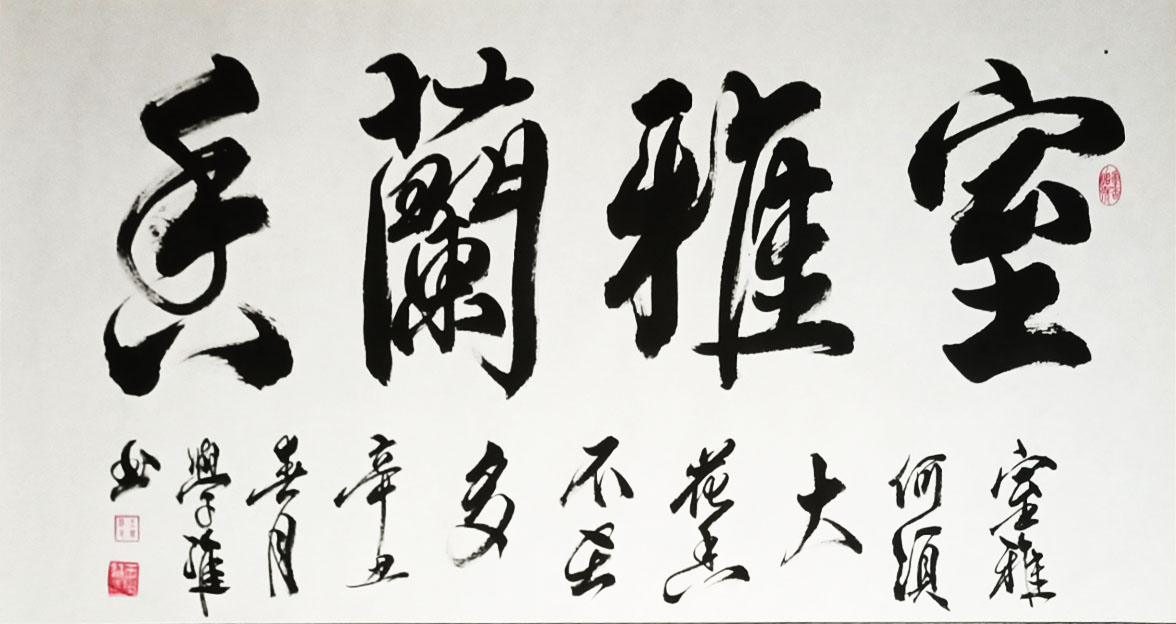 室雅蘭香
室雅
何須
大
花香
不在
多
辛丑
春月
學
書